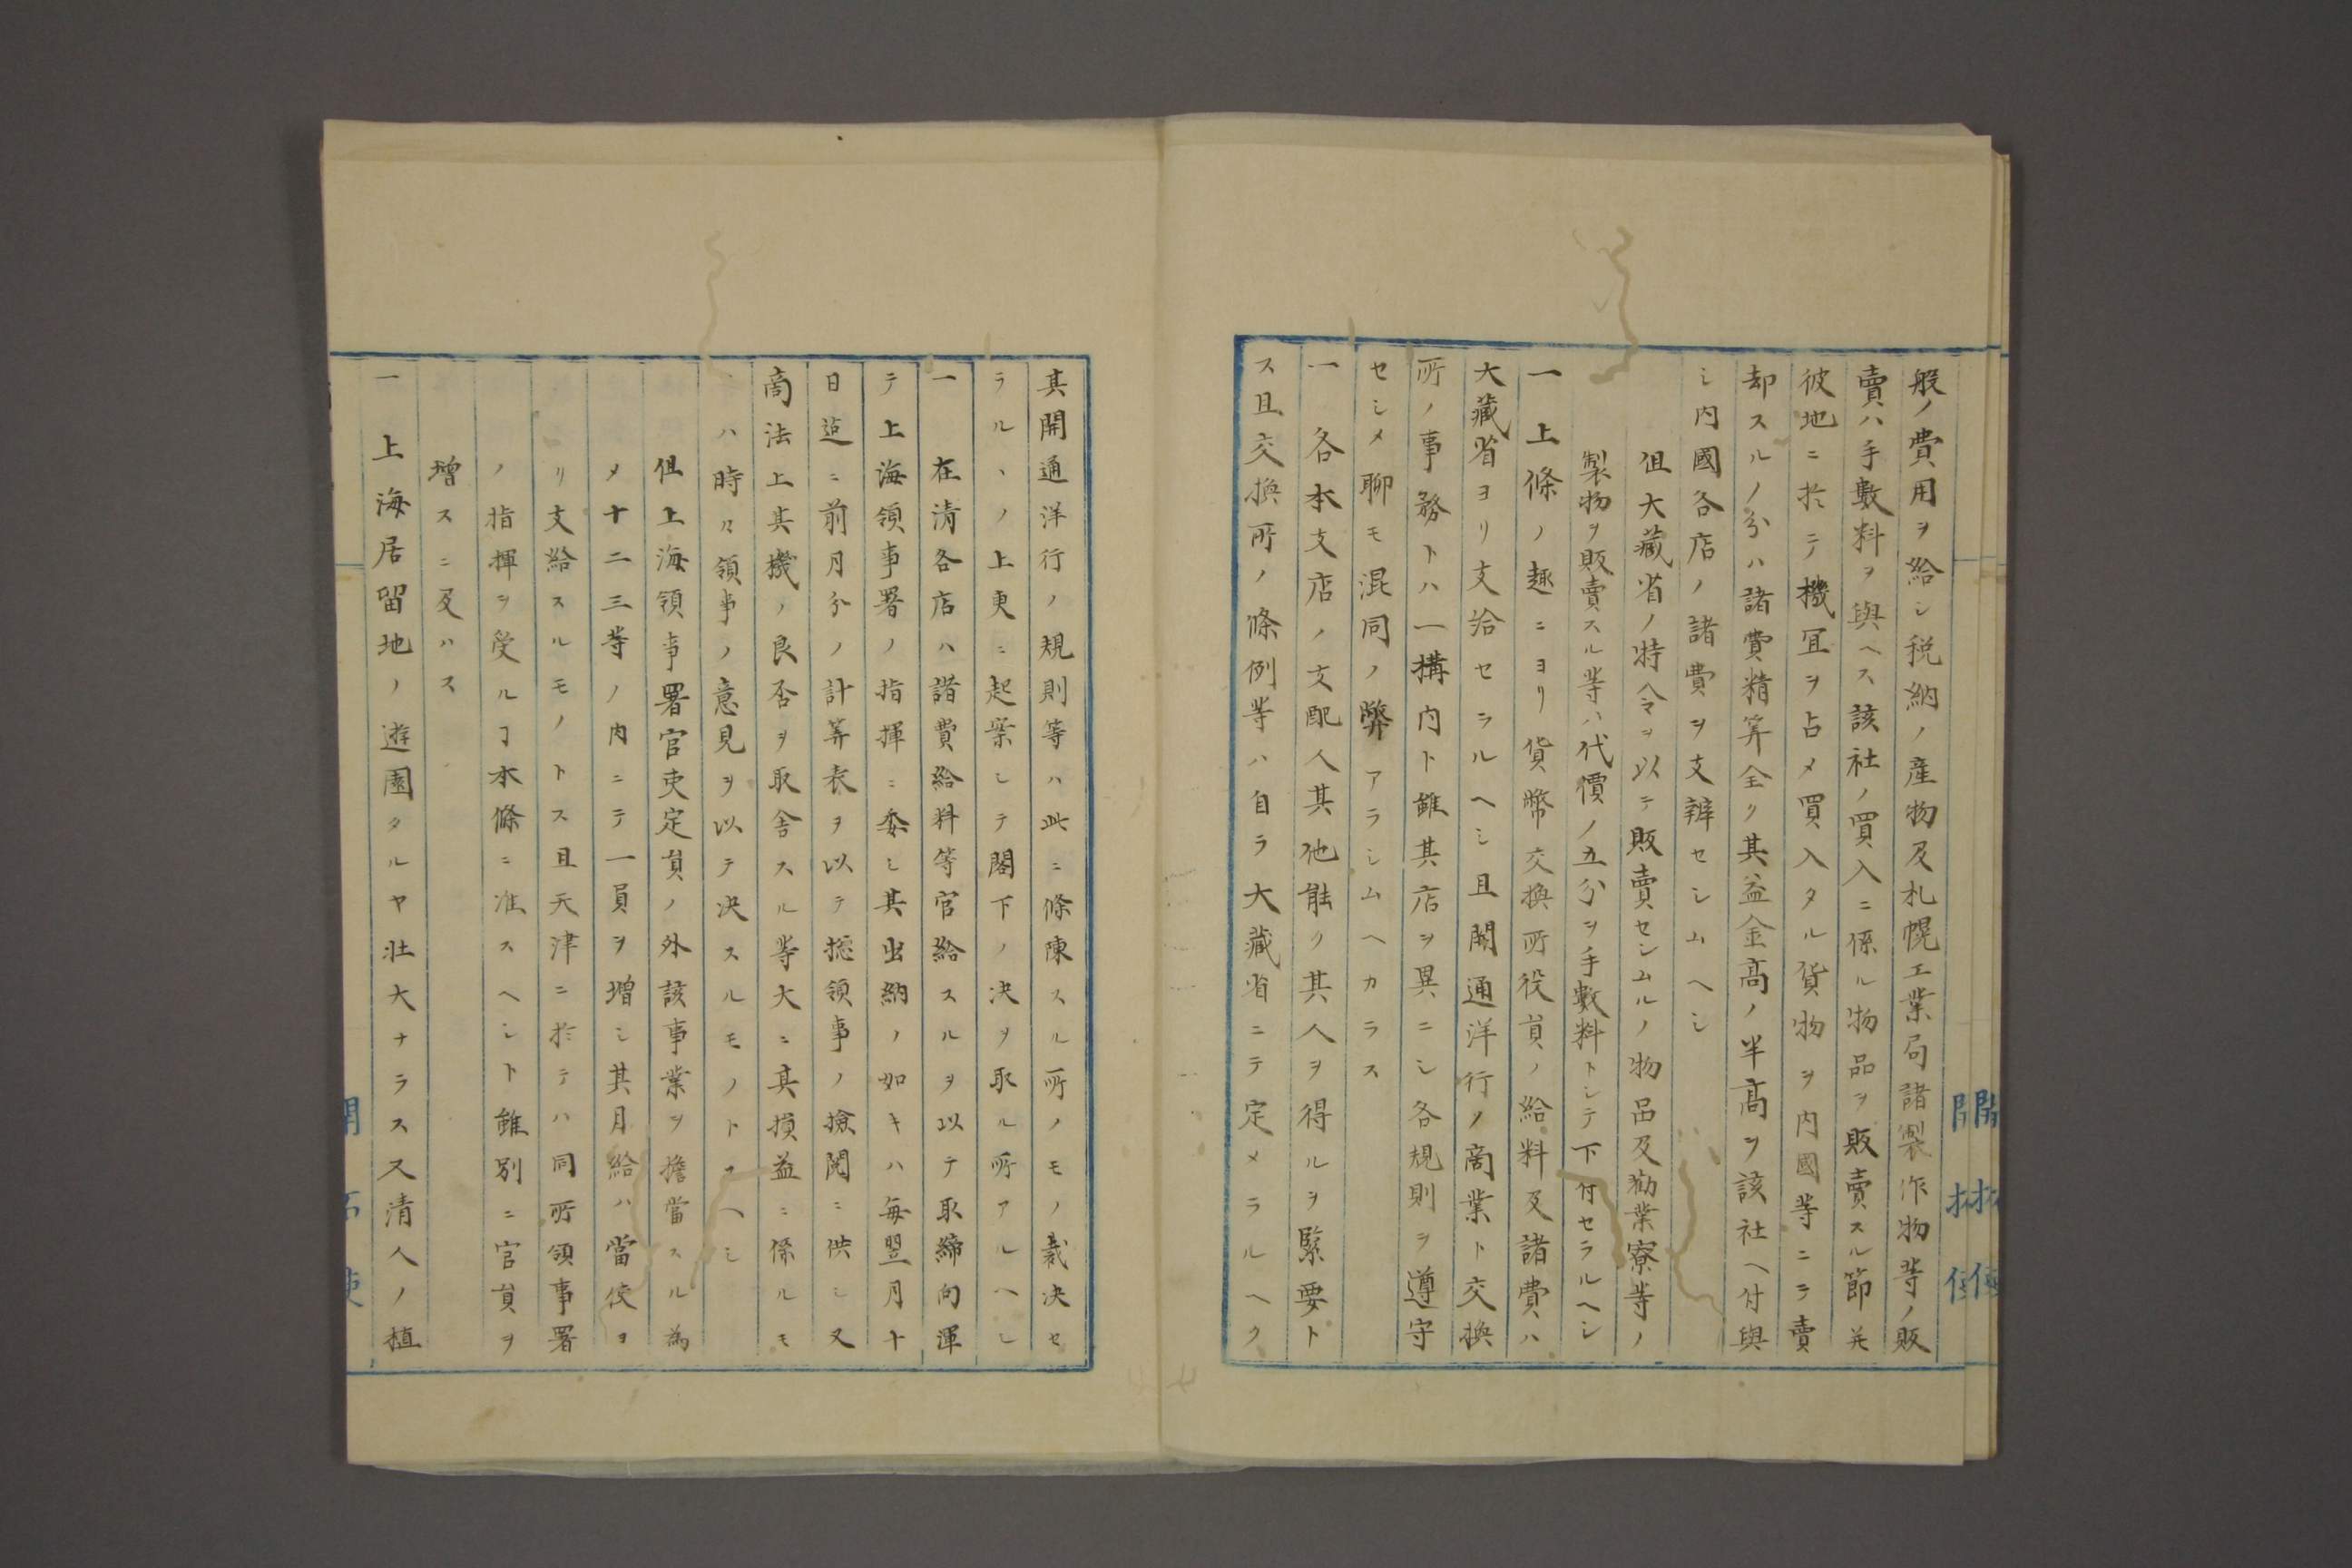 般ノ費用ヲ給シ税納ノ産物及札幌工業局諸製作物等ノ販
賣ハ手數料ヲ與ヘス該社ノ買入ニ係ル物品ヲ販賣スル節并
彼地ニ於テ機冝ヲ占メ買入タル貨物ヲ内國等ニテ賣
却スルノ分ハ諸費精算全ク其益金高ノ半高ヲ該社ヘ付與
シ内國各店ノ諸費ヲ支辨セシムヘシ
但大藏省ノ特令ヲ以テ販賣センムルノ物品及勧業寮等ノ
製物ヲ販賣スル等ハ代價ノ五分ヲ手數料トシテ下付セラルヘシ
一 上條ノ趣ニヨリ貨幣交換所役員ノ給料及諸費ハ
大藏省ヨリ支給セラルヘシ且開通洋行ノ商業ト交換
所ノ事務トハ一構内ト雖其店ヲ異ニシ各規則ヲ遵守
セシメ聊モ混同ノ弊アラシムヘカラス
一 各本支店ノ支配人其他能ク其人ヲ得ルヲ緊要ト
ス且交換所ノ條例等ハ自ラ大藏省ニテ定メラルヘク
其開通洋行ノ規則等ハ此ニ條陳スル所ノモノ裁决セ
ラルヽノ上更ニ起案シテ閣下ノ决ヲ取ル所アルヘシ
一 在清各店ハ諸費給料等官給スルヲ以テ取締向渾
テ上海領事署ノ指揮ニ委シ其出納ノ如キハ毎翌月十
日迠ニ前月分ノ計筭表ヲ以テ總領事ノ撿閲ニ供シ又
商法上其機ノ良否ヲ取舎スル等大ニ其損益ニ係ルモ
ノハ時々領事ノ意見ヲ以テ决スルモノトスヘシ
但上海領事署官吏定員ノ外該事業ヲ擔當スル為
メ十二三等ノ内ニテ一員ヲ増シ其月給ハ當使ヨ
リ支給スルモノトス且天津ニ於テハ同所領事署
ノ指揮ヲ受ルヿ本條ニ准スヘシト雖別ニ官員ヲ
増スニ及ハス
一 上海居留地ノ遊園タルヤ壮大ナラス又清人ノ植
開拓使